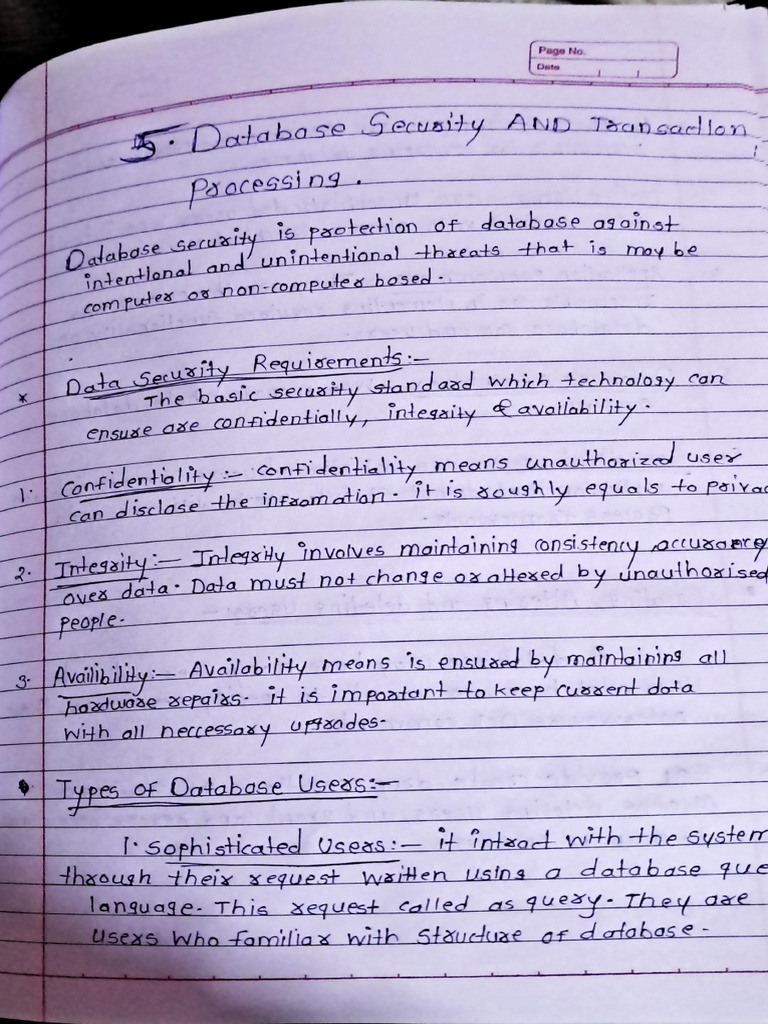 Page No.
Date
5. Database Security AND Transaction
Processing.
Database security is protection of database against
intentional and unintentional threats that is may be
computer or non-computer based.
* Data Security Requirements:-
The basic security standard which technology can
ensure are confidentially, integrity & availability.
1. Confidentiality:- confidentiality means unauthorized user
can disclose the infromation. it is roughly equals to privac
2. Integrity:- Integrity involves maintaining consistency, accurancy
over data. Data must not change or altered by unauthorised
people.
3. Availibility:- Availability means is ensured by maintaining all
hardware repairs. it is important to keep current data
with all neccessary upgrades.
Types of Database Users:-
1. Sophisticated Users:- it intract with the system
through their request written using a database que
language. This request called as query. They are
users who familiar with structure of database.